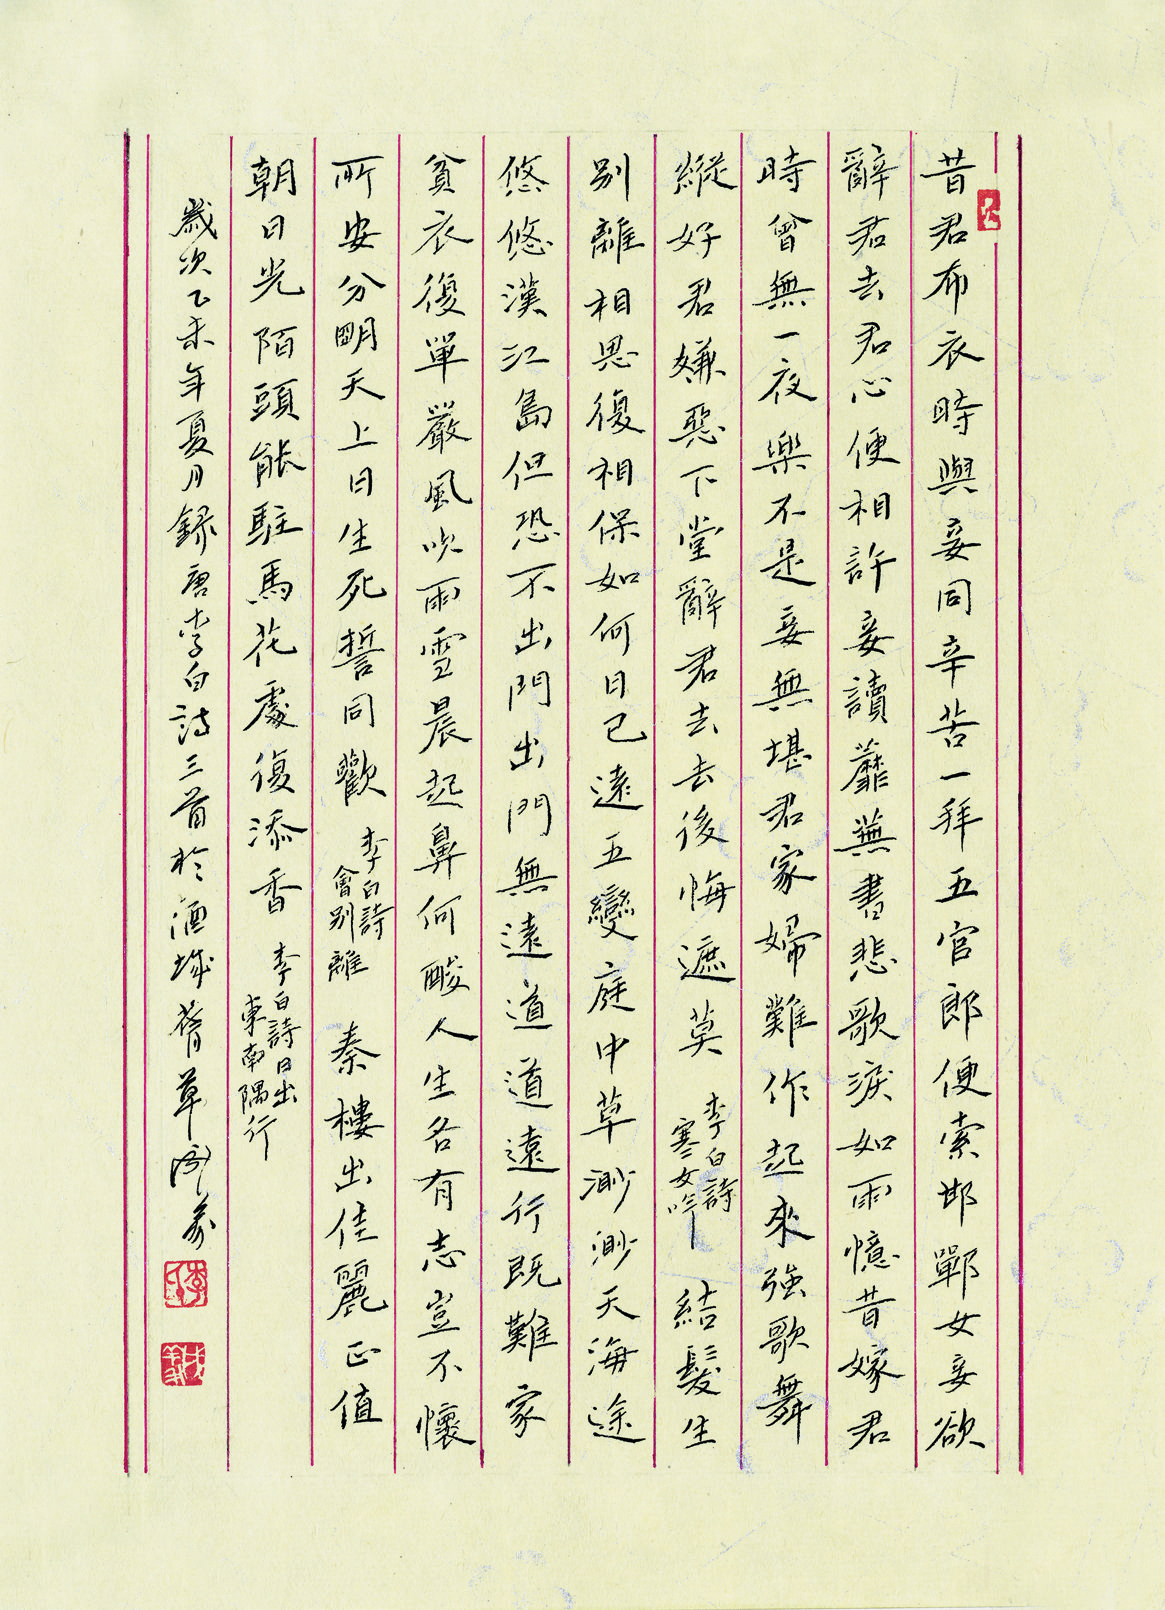 昔君布衣時與妾同辛苦一拜五官郎便索邯鄲女妾欲
辭君去君心便相許妾讀蘼蕪書悲歌淚如雨憶昔嫁君
時曾無一夜樂不是妾無堪君家婦難作起來強歌舞
縱好君嫌惡下堂辭君去去後悔遮莫
李白詩
寒女吟
結髮生
別離相思復相保如何日已遠五變庭中草渺渺天海途
悠悠漢江島但恐不出門出門無遠道道遠行既難家
貧衣復單嚴風吹雨雪晨起鼻何酸人生各有志豈不懷
所安分明天上日生死誓同歡
李白詩
會別離
秦樓出佳麗正值
朝日光陌頭能駐馬花處復添香
李白詩日出
東南隅行
歲次乙未年夏月錄唐李白詩三首於酒城